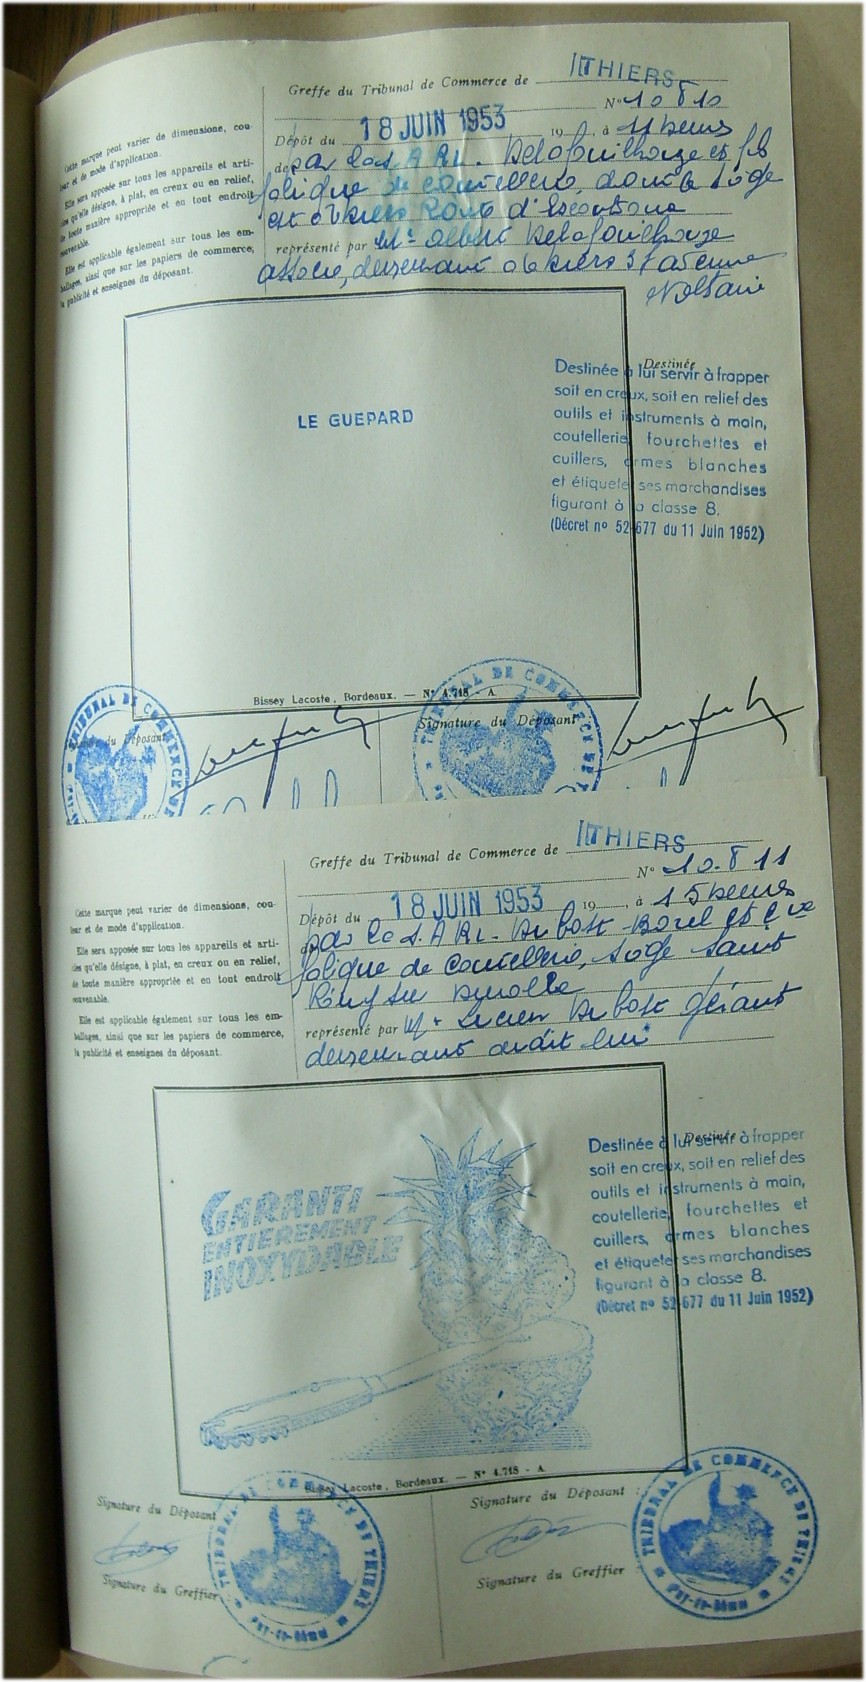 Greffe du Tribunal de Commerce de THIERS
N° 10810
Dépôt du 18 JUIN 1953 19 , à 11 heures
par la S.A.R.L. Delafouilhouze et fils
fabrique de coutellerie, dont le siège
est à Thiers Route d'
représenté par Mr Albert Delafouilhouze
associé, demeurant à Thiers 37 avenue
Voltaire
Cette marque peut varier de dimension, cou-
leur et de mode d'application.
Elle sera apposée sur tous les appareils et arti-
cles qu'elle désigne, à plat, en creux ou en relief,
de toute manière appropriée et en tout endroit
convenable.
Elle est applicable également sur tous les em-
ballages, ainsi que sur les papiers de commerce,
la publicité et enseignes du déposant.
LE GUEPARD
Destinée
Destinée à lui servir à frapper
soit en creux, soit en relief des
outils et instruments à main,
coutellerie, fourchettes et
cuillers, armes blanches
et étiqueter ses marchandises
figurant à la classe 8.
(Décret n° 52-677 du 11 Juin 1952)
Bissey Lacoste, Bordeaux. — N° 4.718 - A
Signature du Déposant
Signature du Déposant
TRIBUNAL DE COMMERCE DE
TRIBUNAL DE COMMERCE DE
Greffe du Tribunal de Commerce de THIERS
N° 10.811
Dépôt du 18 JUIN 1953 19 , à 15 heures
par la S.A.R.L. Dubost-Borel et Cie
fabrique de coutellerie, siège Saint
Rémy sur Durolle
représenté par Mr Lucien Dubost gérant
demeurant audit lieu
Cette marque peut varier de dimension, cou-
leur et de mode d'application.
Elle sera apposée sur tous les appareils et arti-
cles qu'elle désigne, à plat, en creux ou en relief,
de toute manière appropriée et en tout endroit
convenable.
Elle est applicable également sur tous les em-
ballages, ainsi que sur les papiers de commerce,
la publicité et enseignes du déposant.
GARANTI
ENTIEREMENT
INOXYDABLE
Destinée
Destinée à lui servir à frapper
soit en creux, soit en relief des
outils et instruments à main,
coutellerie, fourchettes et
cuillers, armes blanches
et étiqueter ses marchandises
figurant à la classe 8.
(Décret n° 52-677 du 11 Juin 1952)
Bissey Lacoste, Bordeaux. — N° 4.718 - A
Signature du Déposant
Signature du Déposant :
Signature du Greffier :
Signature du Greffier :
TRIBUNAL DE COMMERCE DE THIERS
PUY-DE-DÔME
TRIBUNAL DE COMMERCE DE THIERS
PUY-DE-DÔME